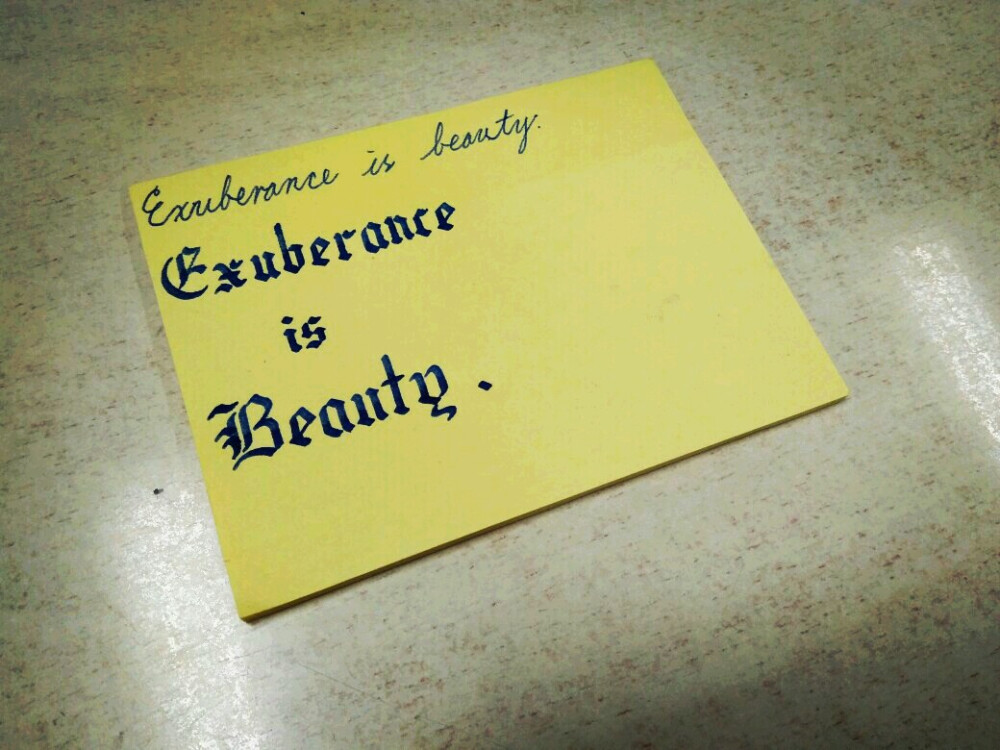 Exuberance is beauty.
Exuberance
is
Beauty.